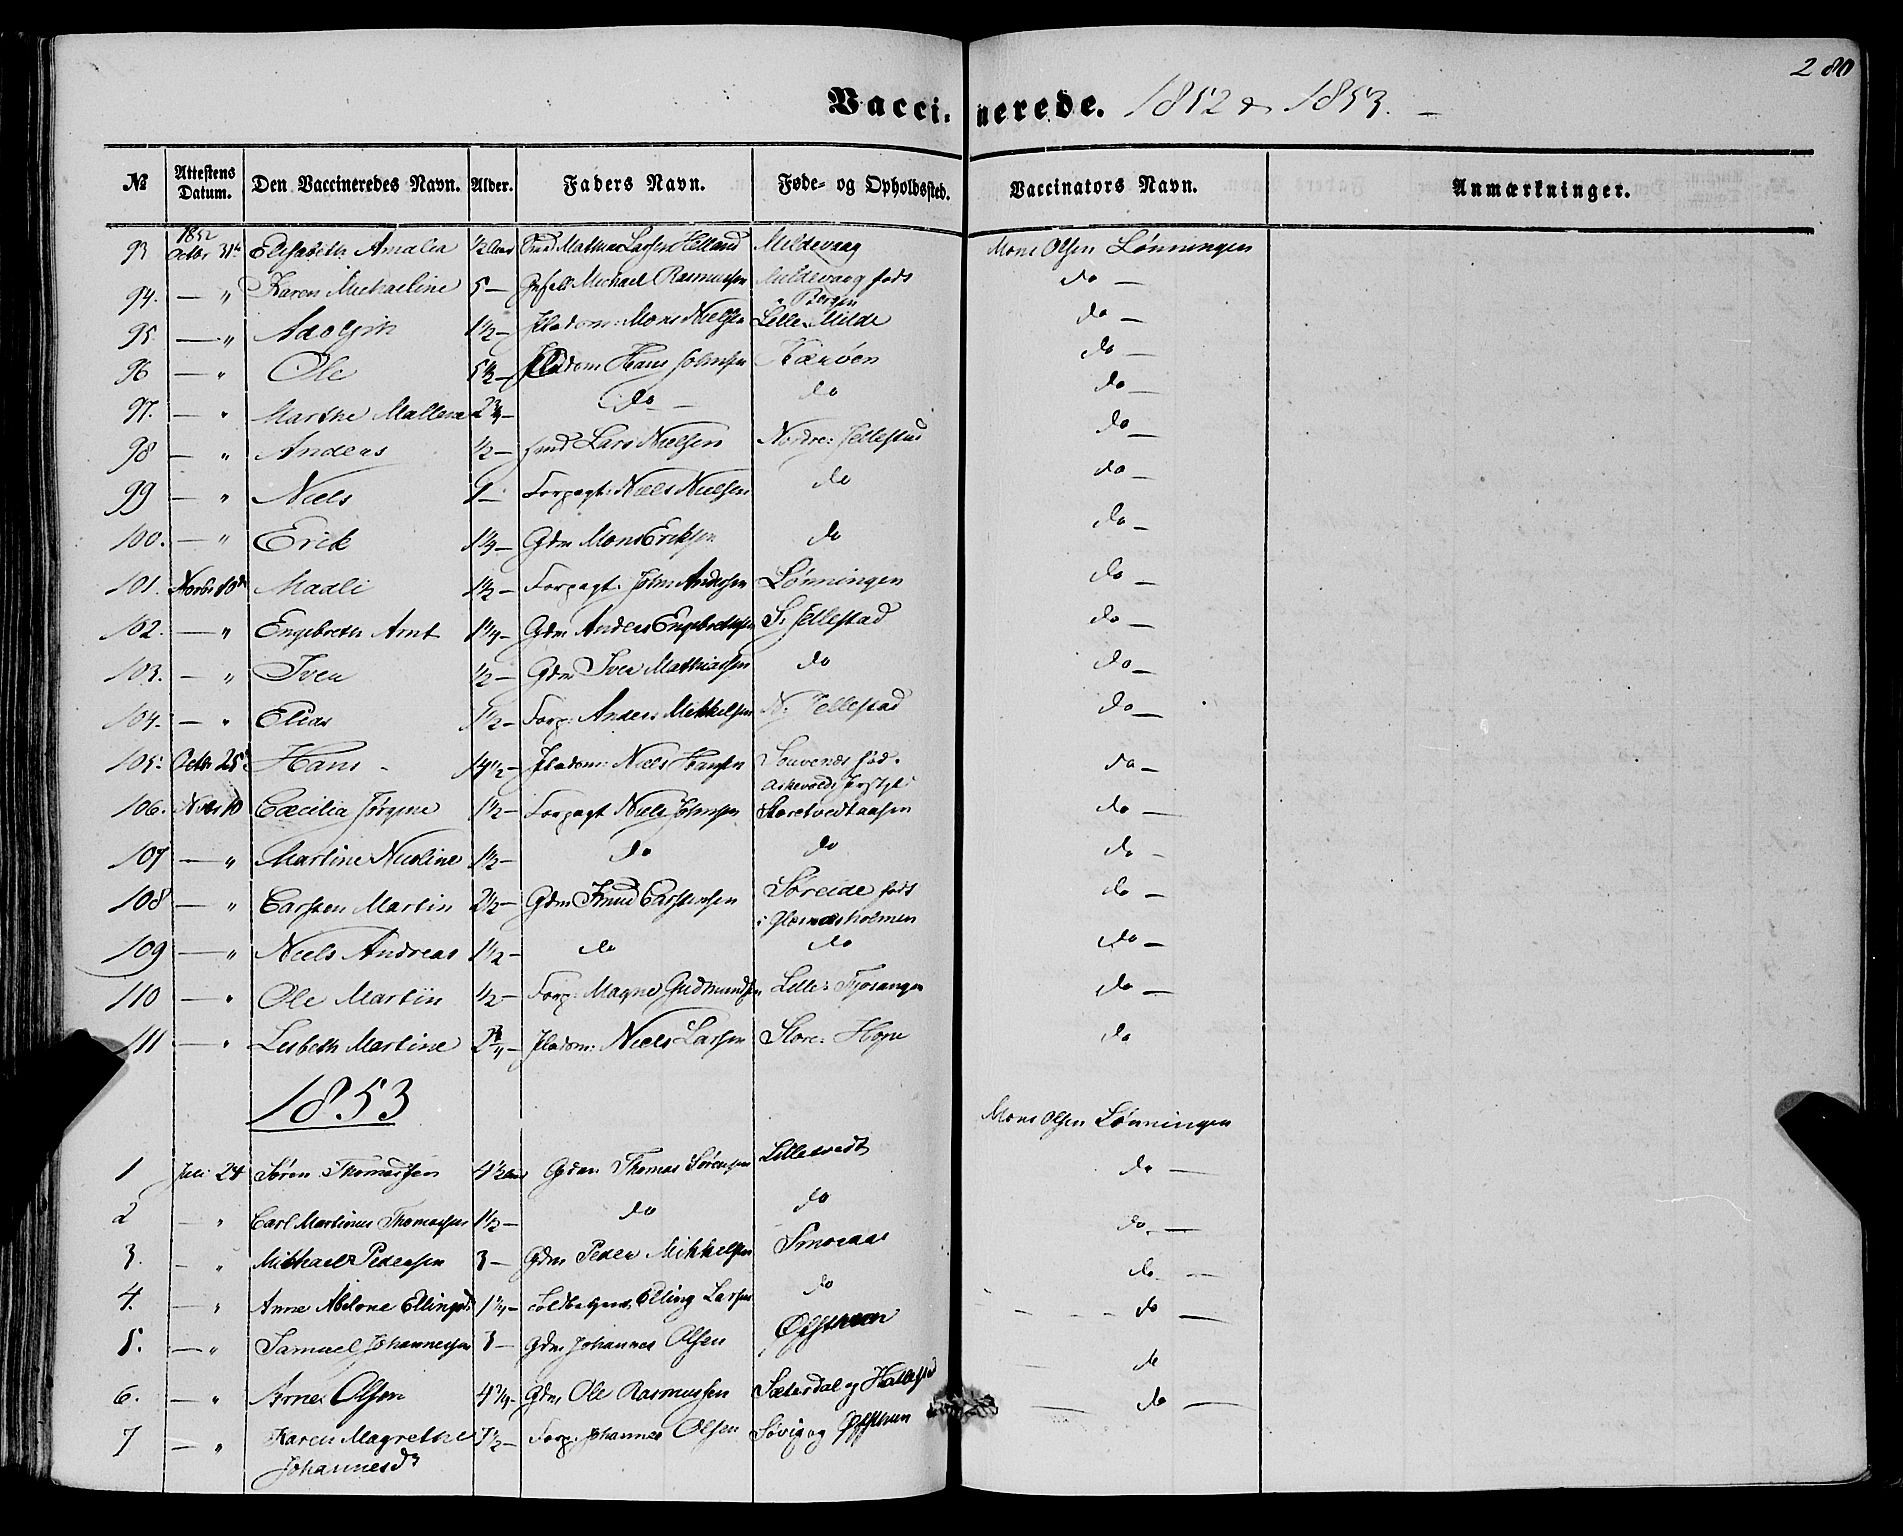 280
Vaccinerede. 1852 & 1853.
№ Attestens Datum. Den Vaccineredes Navn. Alder. Faders Navn. Føde- og Opholdssted. Vaccinators Navn. Anmærkninger.
1852
93 Octbr 31te Elisabeth Amalia ½ Aar Larsen Helland Mildevaag Mons Olsen Lønningen
94. — " Karen Michaeline 5 — Michael Rasmussen Mildevaag født do —
i Bergen
95. — " 1½ — Pladsm: Mons Nielsen Lille Milde do —
96 — " Ole 5½ — Pladsm Hans Johnsen do —
97. — " Marthe Mallena 2¾ — do — do do —
98 — " Anders ½ — Lars Nielsen Nordre: Jellestad do —
99 — " Niels Forpagt: Niels Nielsen do do —
100. — " Erik 1¼ — Gdm Mons Eriksen do do —
101. Novbr 10de Madli 1½ — Forpagt: John Andersen Lønningen do —
102. — " Engebreth Arnt 1¼ — Gdm Anders Engebrethsen S: Jellestad do —
103. — " Iver ½ — Gdm Iver Mathiassen do do —
104. — " Elias 1½ — Forp: Anders Mikkelsen N: Jellestad do —
105: Octbr 25de Hans 14½ — Pladsm: Niels Hansen do —
106. Novbr 10 Cæcilia Jørgine 1½ — Forpagt Niels Johnsen Storetvedtaasen do —
107 — " Martine Nicoline 1½ — do do do —
108 — " Carsten Martin 2½ — Gdm Knud Carstensen Søreide født do —
109 — " Niels Andreas 1½ — do do do —
110 — " Ole Martin ½ — Forp: Magne Gudmundsen Lille: Fjøsanger do —
111 — " Lisbeth Martine 2¾ — Pladsm: Niels Larsen Store: Hope do
1853
Mons Olsen Lønningen
1 Juli 24 Søren Thomassen 4½ Aar Gdm: Thomas Sørensen Lilletvedt do —
2 — " Carl Martinus Thomassen 1½ — do do do. —
3. — " Michael Pedersen 3 — Gdm Peder Mikkelsen Smøraas do —
4. — " Anne Abelone Ellingsd: 1¼ — Elling Larsen do do —
5. — " Samuel Johannessen 3 — Gdm Johannes Olsen Øfsthun do
6. — " Arne Olsen 4¼ — Gdm Ole Rasmussen Sæterdal og do —
7 — " Karen Magrethe ½ — Forp: Johannes Olsen Søvig og Øfsthun
Johannesdr